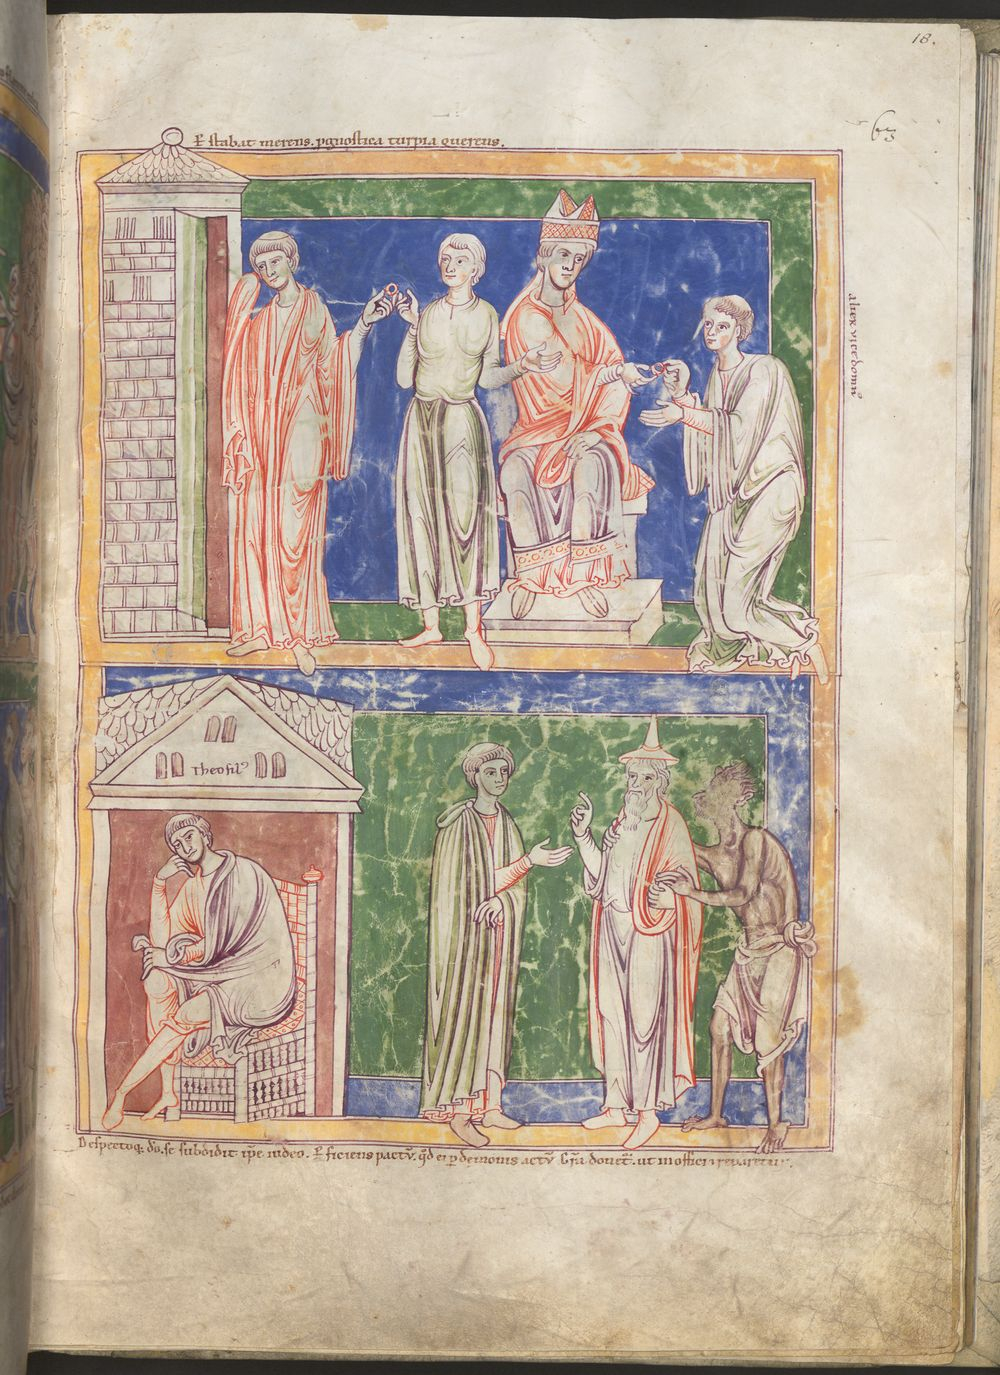 18.
63
Estabat merens. pgnostica turpia querens.
alter vicedomin⁹
Theofil⁹
Despectoq; do. se subdidit ipe iudeo. Efficiens pactū. qd ei p demonis actū Gra donet². ut in offici reparetur.